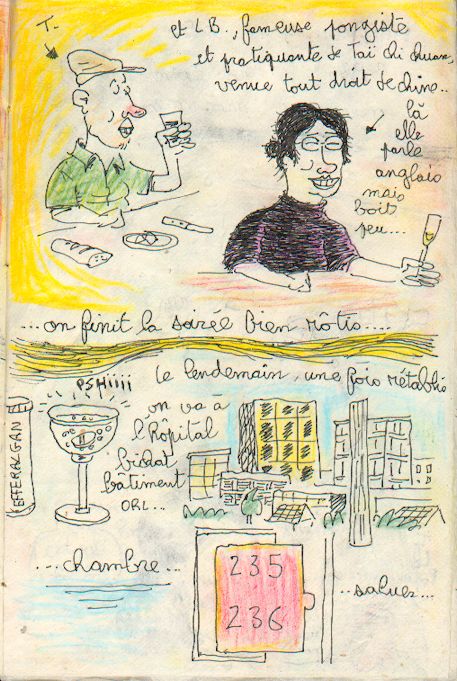 T.
et L B., fameuse pongiste
et pratiquante de Taï chi chuan,
venue tout droit de chine..
là
elle
parle
anglais
mais
boit
peu....
...on finit la soirée bien rôtis....
le lendemain, une fois rétablis
PSHIIII
EFFERALGAN
on va à
l'hôpital
bichat
bâtiment
ORL...
...chambre...
235
236
..saluer...